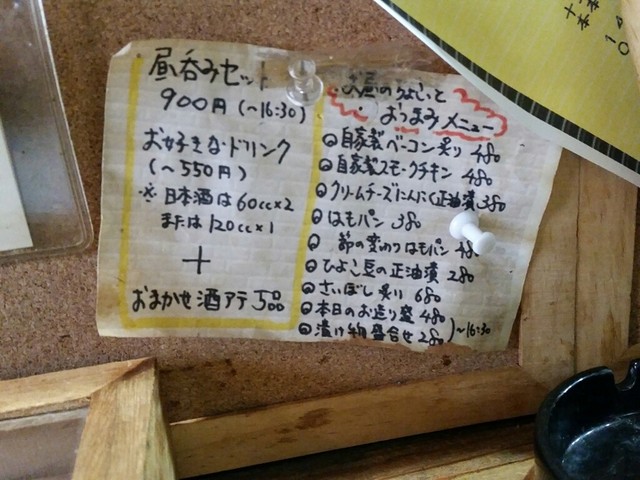 昼呑みセット
900円(~16:30)
お好きなドリンク
(~550円)
※日本酒は60cc×2
または120cc×1
+
おまかせ酒アテ5品
お昼のちょいと
おつまみメニュー
自家製ベーコン炙り 480
自家製スモークチキン 480
クリームチーズにんにく正油漬 380
はもパン 380
節の変わりはもパン 480
ひよこ豆の正油漬 280
さいぼし炙り 680
本日のお造り盛 480
漬け物盛合せ 280 )~16:30